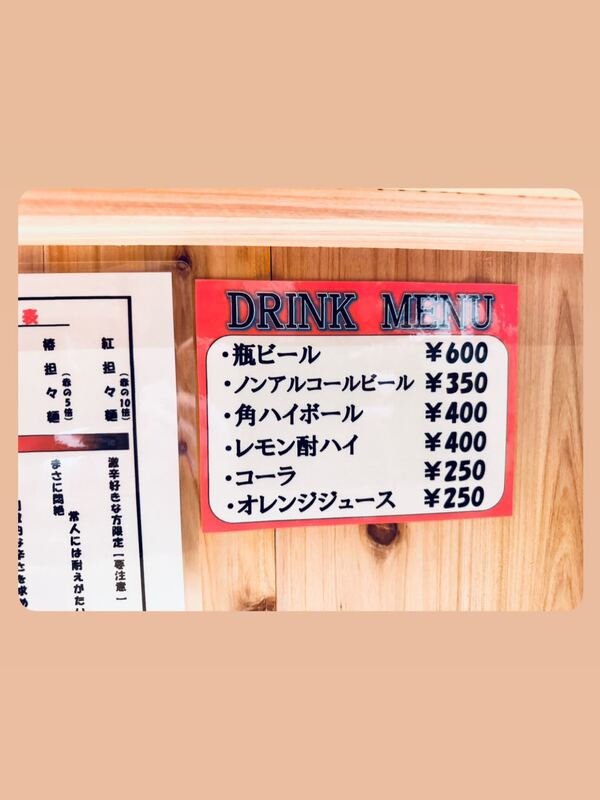 DRINK MENU
・瓶ビール ¥600
・ノンアルコールビール ¥350
・角ハイボール ¥400
・レモン酎ハイ ¥400
・コーラ ¥250
・オレンジジュース ¥250
紅担々麺
(赤の10倍)
激辛好きな方限定【要注意】
椿担々麺
(赤の5倍)
常人には耐えがたい
まさに悶絶
表